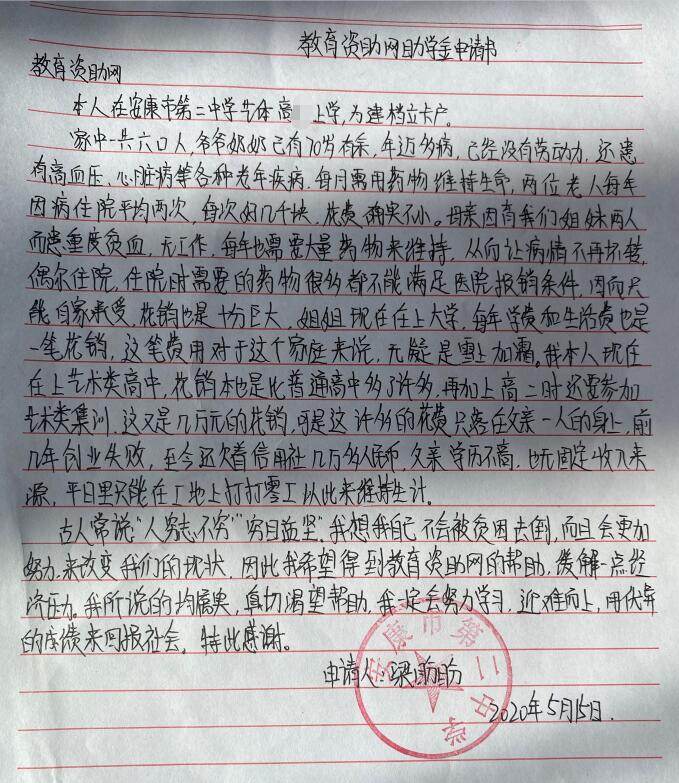 教育资助网助学金申请书
教育资助网
本人在安康市第二中学艺体高 上学,为建档立卡户。
家中一共六口人,爷爷奶奶已有70岁有余,年迈多病,已经没有劳动力,还患
有高血压、心脏病等各种老年疾病,每月需用药物维持生命,两位老人每年
因病住院平均两次,每次好几千块,花费确实不小。母亲因育我们姐妹两人
而患重度贫血,无工作,每年也需要大量药物来维持,从而让病情不再坏转,
偶尔住院,住院时需要的药物很多都不能满足医院报销条件,因而只
能自家承受,花销也是十分巨大,姐姐现在在上大学,每年学费和生活费也是
一笔花销,这笔费用对于这个家庭来说,无疑是雪上加霜。我本人现在
在上艺术类高中,花销本也是比普通高中多了许多,再加上高二时还要参加
艺术类集训,这又是几万元的花销,可是这许多的花费只落在父亲一人的身上,前
几年创业失败,至今还欠着信用社几万多人民币,父亲学历不高,也无固定收入来
源,平日里只能在工地上打打零工以此来维持生计。
古人常说"人穷志不穷""穷且益坚,我想我自己不会被贫困击倒,而且会更加
努力来改变我们的现状,因此我希望得到教育资助网的帮助,缓解一点经
济压力。我所说的均属实,真切渴望帮助,我一定会努力学习,迎难向上,用优异
的成绩来回报社会。特此感谢。
申请人:梁盼盼
2020年5月15日.
安康市第二中学